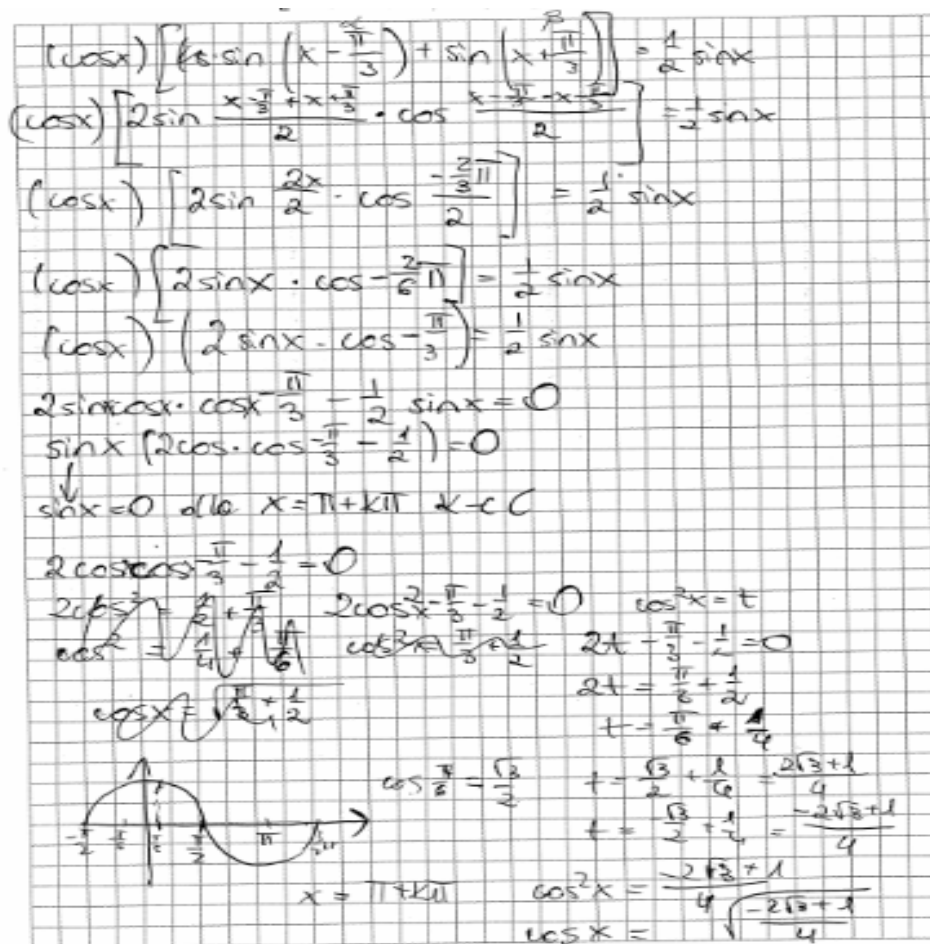 α β
(cosx) [sin (x - π/3) + sin (x + π/3)] = 1/2 sinx
(cosx) [2sin (x - π/3 + x + π/3)/2 · cos (x - π/3 - x - π/3)/2] = 1/2 sinx
(cosx) [2sin 2x/2 · cos (-2/3 π)/2] = 1/2 sinx
(cosx) [2sinx · cos - 2/6 π] = 1/2 sinx
(cosx) (2sinx · cos - π/3) = 1/2 sinx
2sinxcosx · cosx - π/3 - 1/2 sinx = 0
sinx (2cos · cos - π/3 - 1/2) = 0
↓
sinx = 0 dla x = π + kπ k-c C
2cosxcos - π/3 - 1/2 = 0
2cos² = 1/2 + π/3 2cos²x - π/3 - 1/2 = 0 cos²x = t
cos² = 1/4 + π/6 cos²x = π/3 + 1/2 2t - π/3 - 1/2 = 0
2t = π/3 + 1/2
cosx = √(π/3 + 1/2) t = π/6 + 1/4
cos π/6 = √3/2 t = √3/2 + 1/4 = (2√3 + 1)/4
t = √3/2 + 1/4 = (-2√3 + 1)/4
-π/2 π/2 π
x = π + kπ cos²x = (-2√3 + 1)/4
cosx = √((-2√3 + 1)/4)